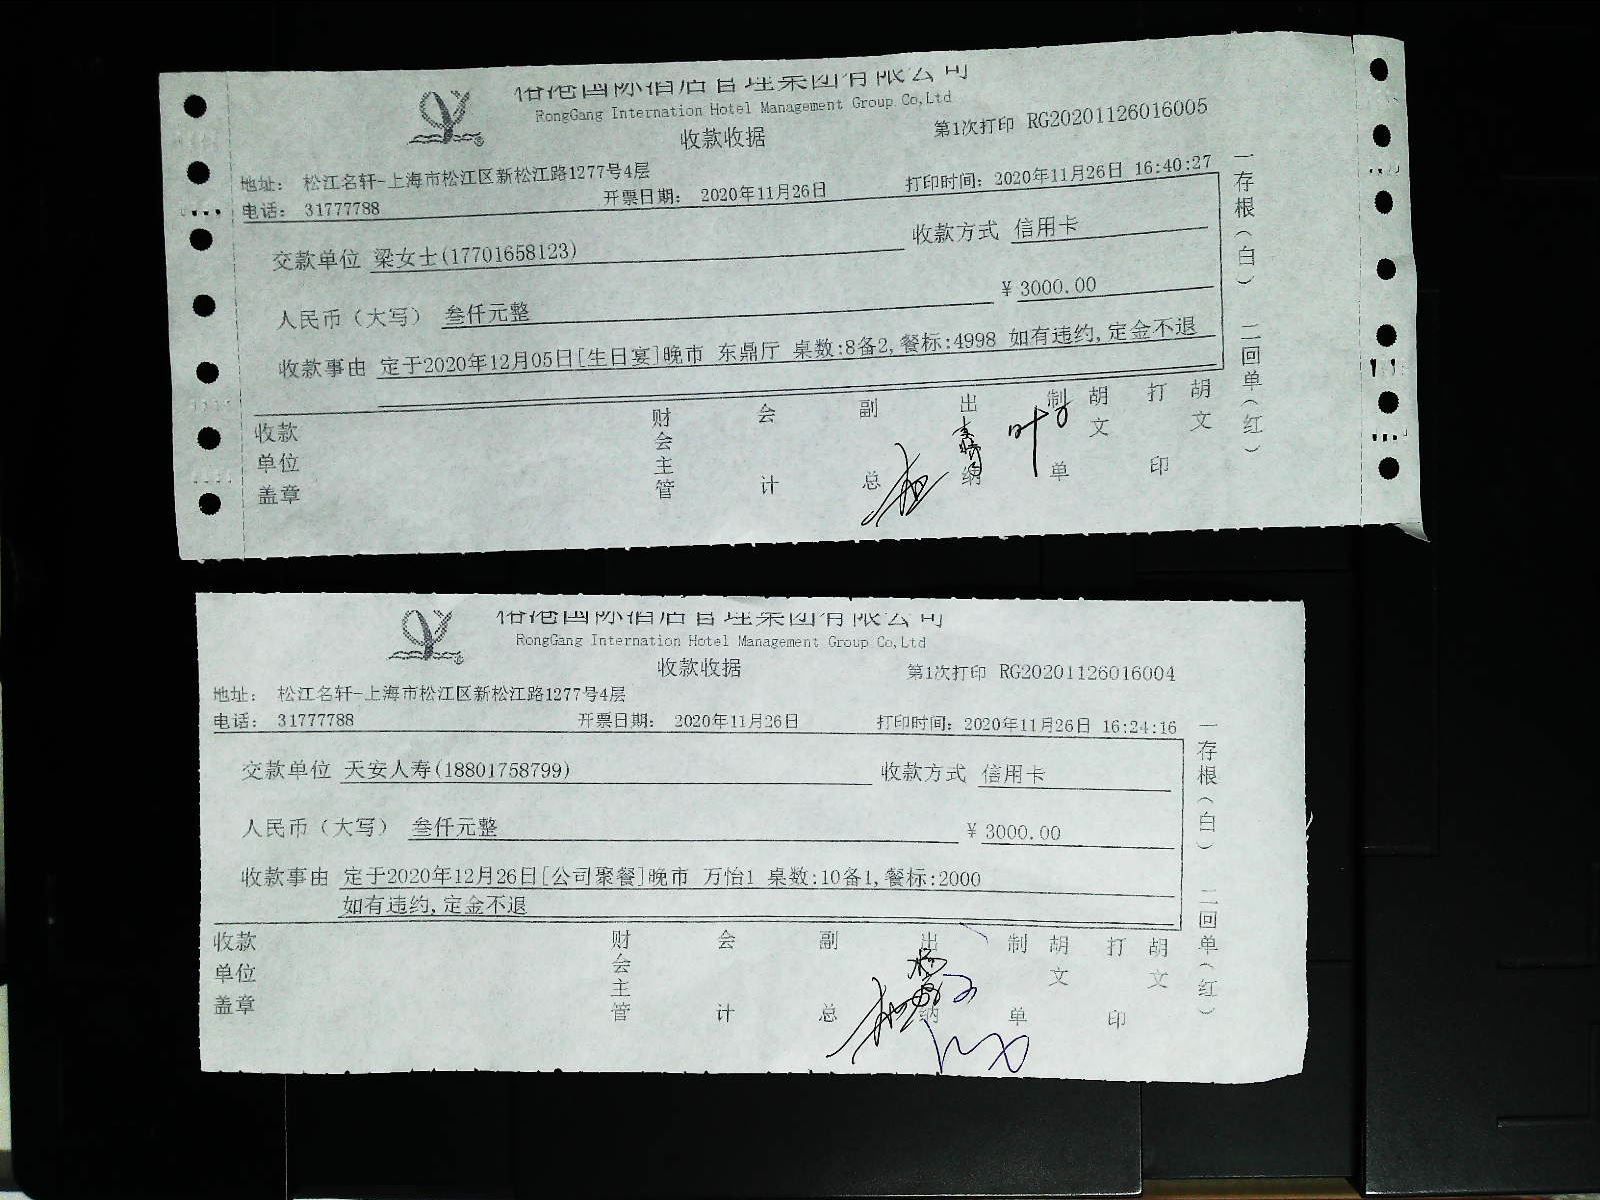 裕港国际酒店管理集团有限公司
RongGang Internation Hotel Management Group Co,Ltd
收款收据
第1次打印 RG20201126016005
地址： 松江名轩-上海市松江区新松江路1277号4层
电话： 31777788 开票日期： 2020年11月26日 打印时间：2020年11月26日 16:40:27
交款单位 梁女士(17701658123) 收款方式 信用卡
人民币（大写） 叁仟元整 ¥ 3000.00
收款事由 定于2020年12月05日[生日宴]晚市 东鼎厅 桌数:8备2,餐标:4998 如有违约,定金不退
收款单位盖章 财会主管 会计 副总 出纳 制单 胡文 打印 胡文
叶
一存根（白） 二回单（红）
裕港国际酒店管理集团有限公司
RongGang Internation Hotel Management Group Co,Ltd
收款收据
第1次打印 RG20201126016004
地址： 松江名轩-上海市松江区新松江路1277号4层
电话： 31777788 开票日期： 2020年11月26日 打印时间：2020年11月26日 16:24:16
交款单位 天安人寿(18801758799) 收款方式 信用卡
人民币（大写） 叁仟元整 ¥ 3000.00
收款事由 定于2020年12月26日[公司聚餐]晚市 万怡1 桌数:10备1,餐标:2000
如有违约,定金不退
收款单位盖章 财会主管 会计 副总 出纳 制单 胡文 打印 胡文
一存根（白） 二回单（红）